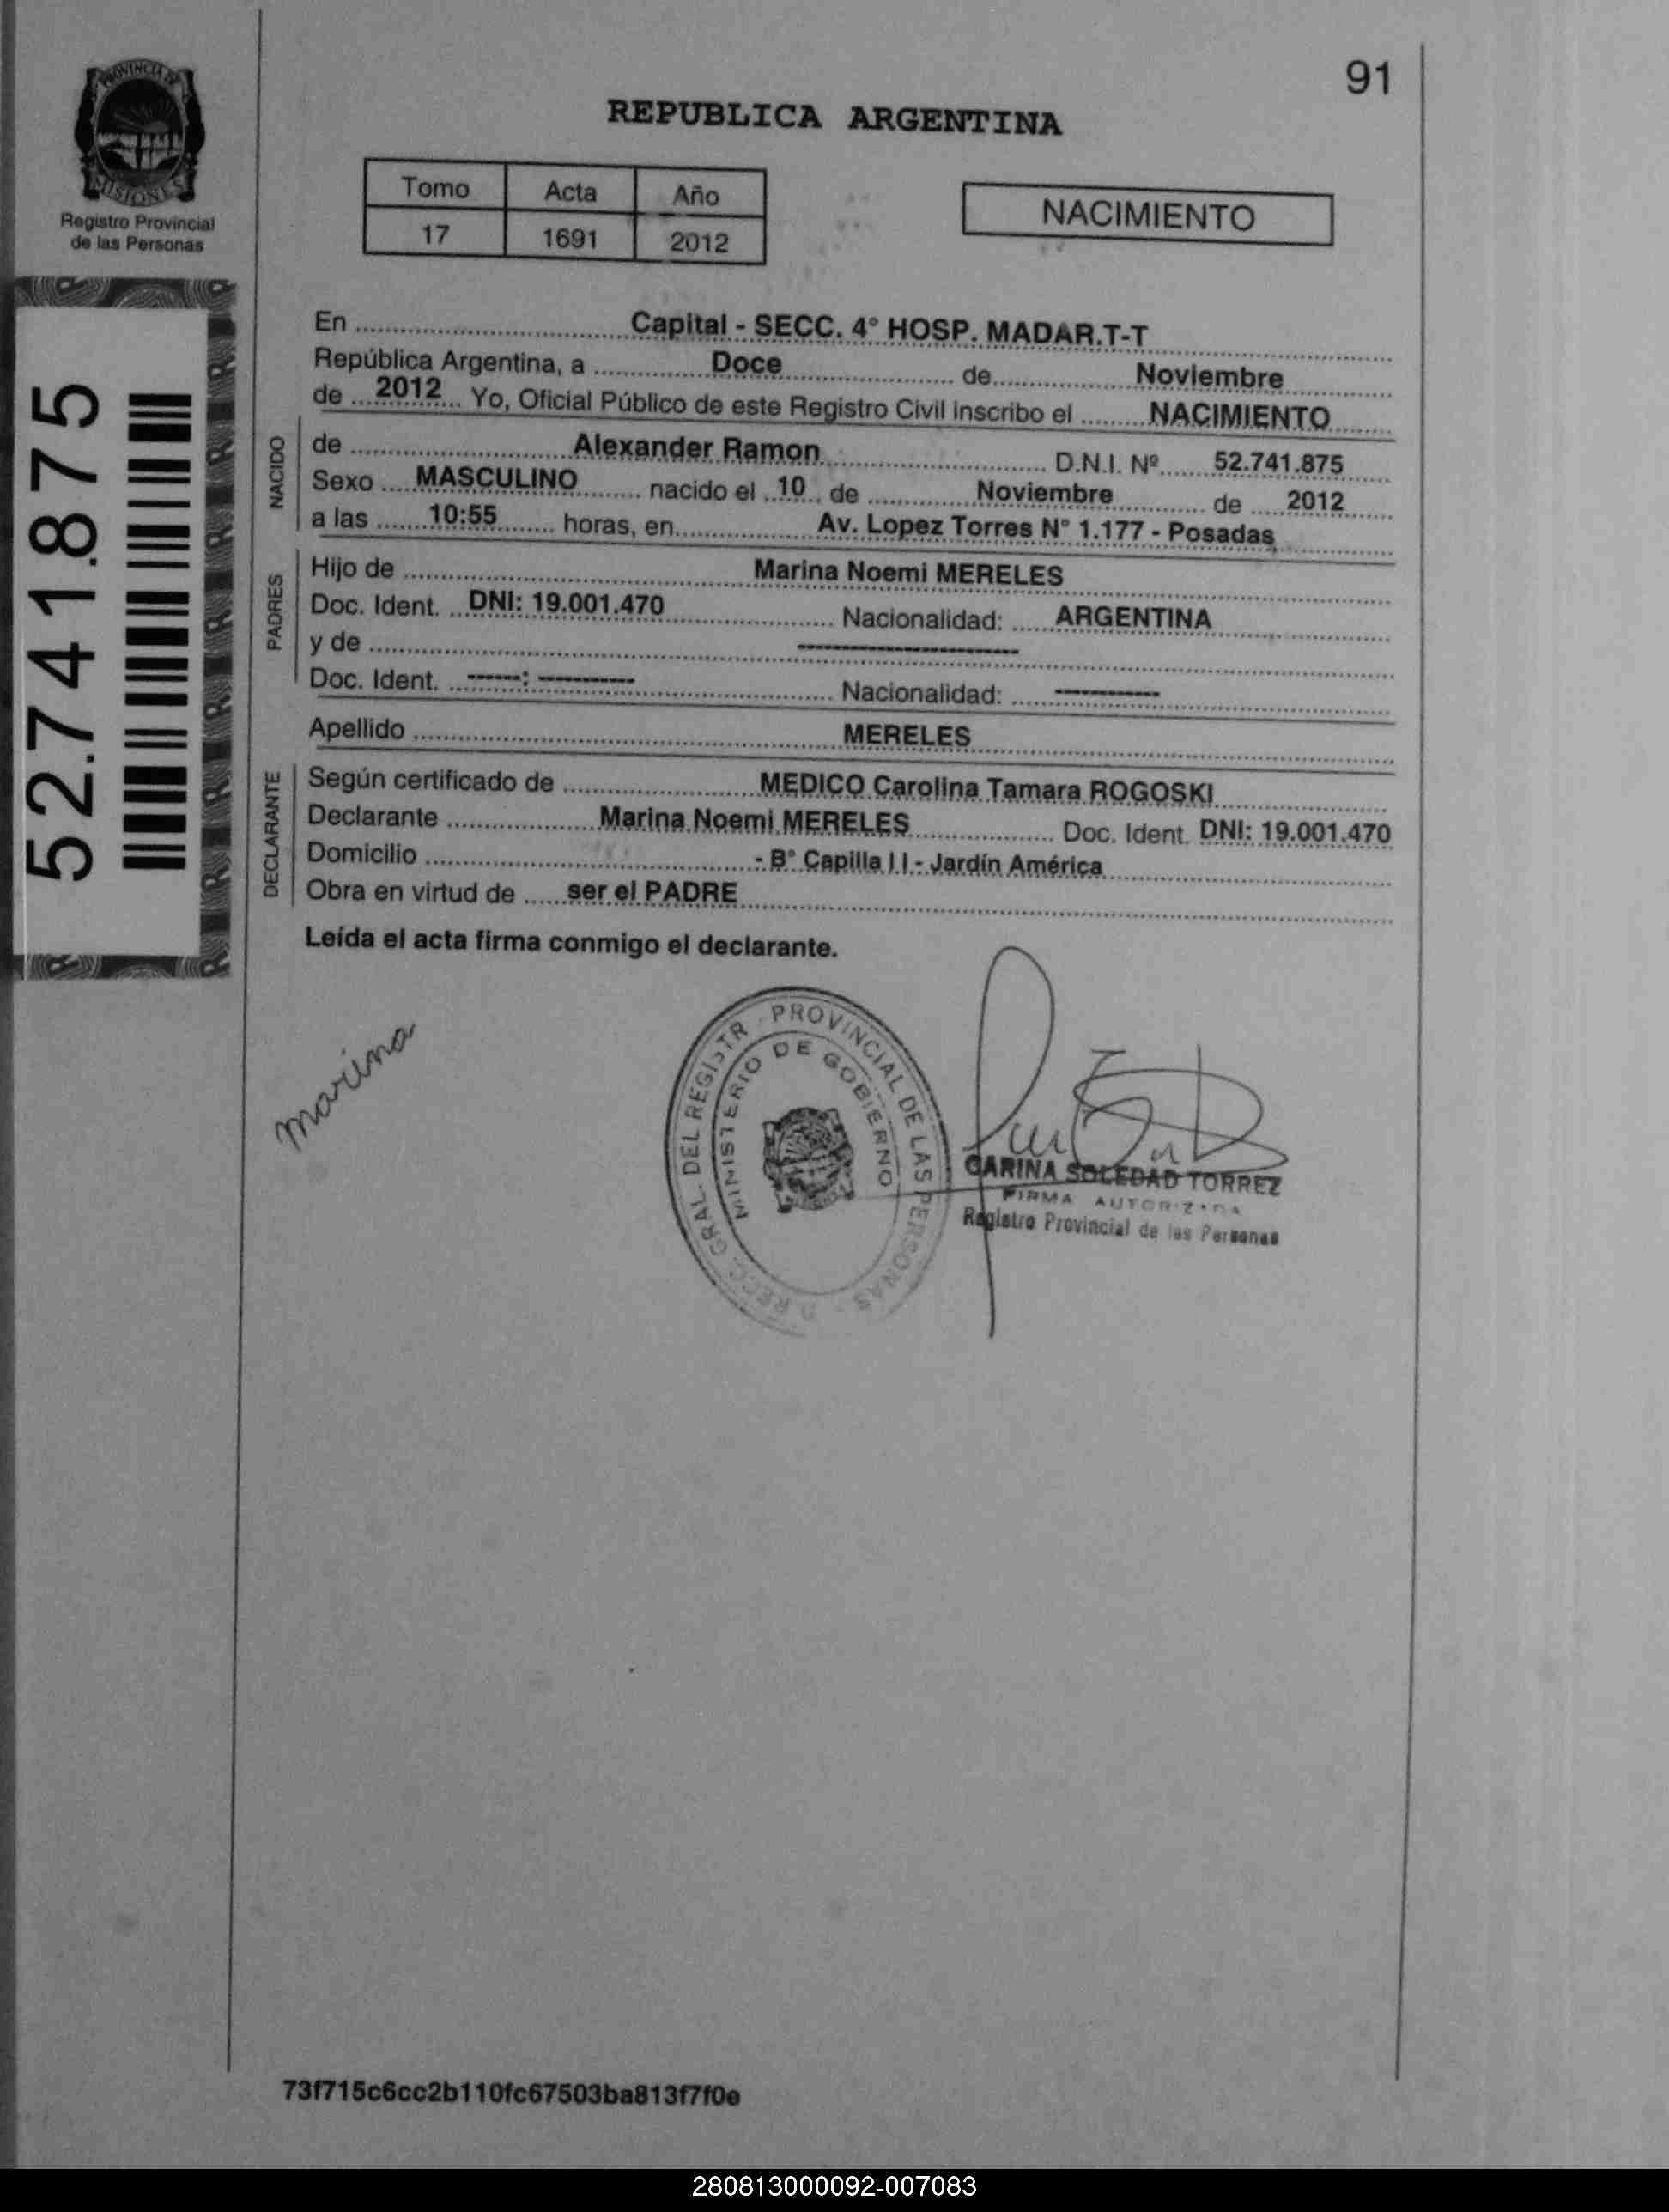 91
PROVINCIA DE
MISIONES
Registro Provincial
de las Personas
REPUBLICA ARGENTINA
Tomo Acta Año
17 1691 2012
NACIMIENTO
52.741.875
En Capital - SECC. 4° HOSP. MADAR.T-T
República Argentina, a Doce de Noviembre
de 2012 Yo, Oficial Público de este Registro Civil inscribo el NACIMIENTO
NACIDO
de Alexander Ramon D.N.I. Nº 52.741.875
Sexo MASCULINO nacido el 10 de Noviembre de 2012
a las 10:55 horas, en Av. Lopez Torres N° 1.177 - Posadas
PADRES
Hijo de Marina Noemi MERELES
Doc. Ident. DNI: 19.001.470 Nacionalidad: ARGENTINA
y de ----------
Doc. Ident. -----: --------- Nacionalidad: ----------
Apellido MERELES
DECLARANTE
Según certificado de MEDICO Carolina Tamara ROGOSKI
Declarante Marina Noemi MERELES Doc. Ident. DNI: 19.001.470
Domicilio - B° Capilla I I - Jardín América
Obra en virtud de ser el PADRE
Leída el acta firma conmigo el declarante.
Marina
GRAL. DEL REGISTR PROVINCIAL DE LAS PERSONAS
MINISTERIO DE GOBIERNO
CARINA SOLEDAD TORREZ
FIRMA AUTORIZADA
Registro Provincial de las Personas
73f715c6cc2b110fc67503ba813f7f0e
280813000092-007083